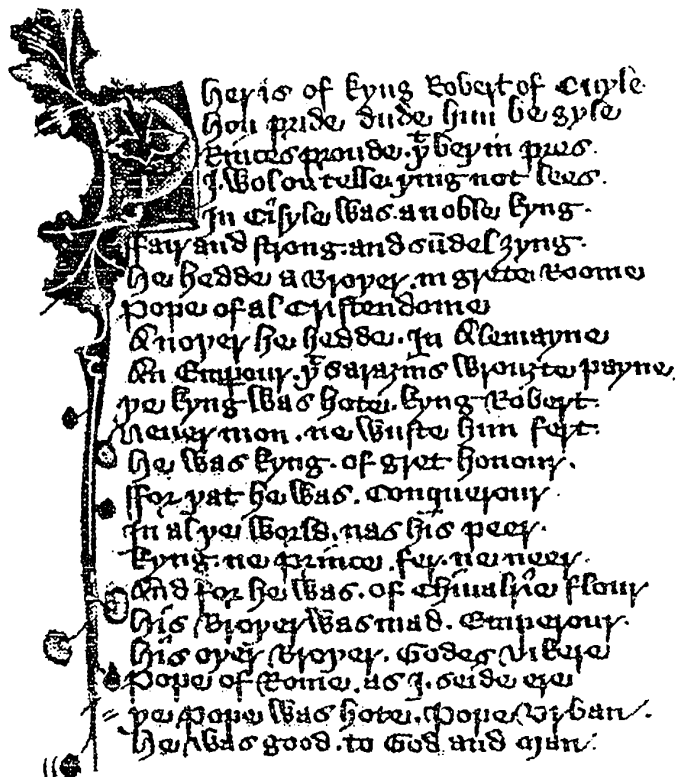 Her is of kyng Robert of Cicyle
Hou pride dude him be gyle
Princes proude . þt beþ in pres .
I . wol ou telle . þing not lees .
In Cisyle was . a noble kyng .
ffair and strong . and sūdel ȝyng .
He hedde a broþer . in grete Roome
Pope of al Cristendome
Anoþer he hedde . In Alemayne
An Emperour . þt Sarazins wrouȝte payne .
þe kyng was hote . kyng Robert .
Never mon . ne wuste him fert .
He was kyng . of gret honour .
ffor þat he was . Conquerour
In al þe world . nas his peer .
Kyng . ne prince . fer . ne neer .
And for he was . of Chivalrie flour
His broþer was mad . Emperour .
His oþer broþer . Godes vikere
Pope of Rome . as I . seide ere
þe Pope was hote . Pope Urban .
He was good . to God and Man .